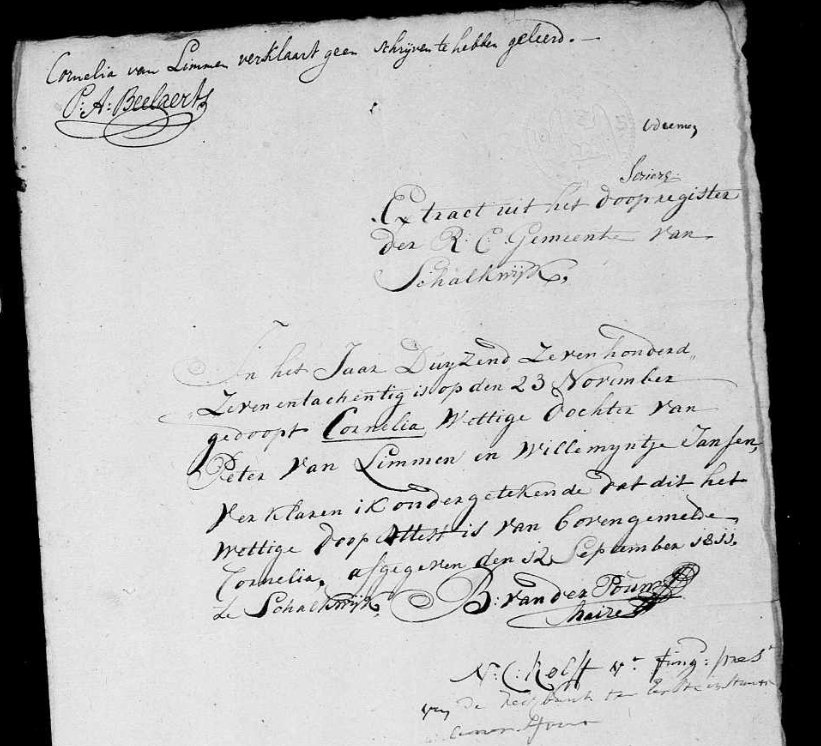 Cornelia van Limmen verklaart geen schrijven te hebben geleerd. —
P: A: Beelaerts
Extract uit het doopregister
der R: C: Gemeente van
Schalkwijk,
In het Jaar Duyzend Zevenhonderd
Zevenentachentig is op den 23 November
gedoopt Cornelia Wettige dochter van
Peter Van Limmen en Willemyntje Jansen,
Verklaren ik ondergetekende dat dit het
Wettige doop Attest is van bovengemelde
Cornelia, afgegeven den 12 September 1811.
te Schalkwijk, B: van der
Maire
N: C: Kolff
van de